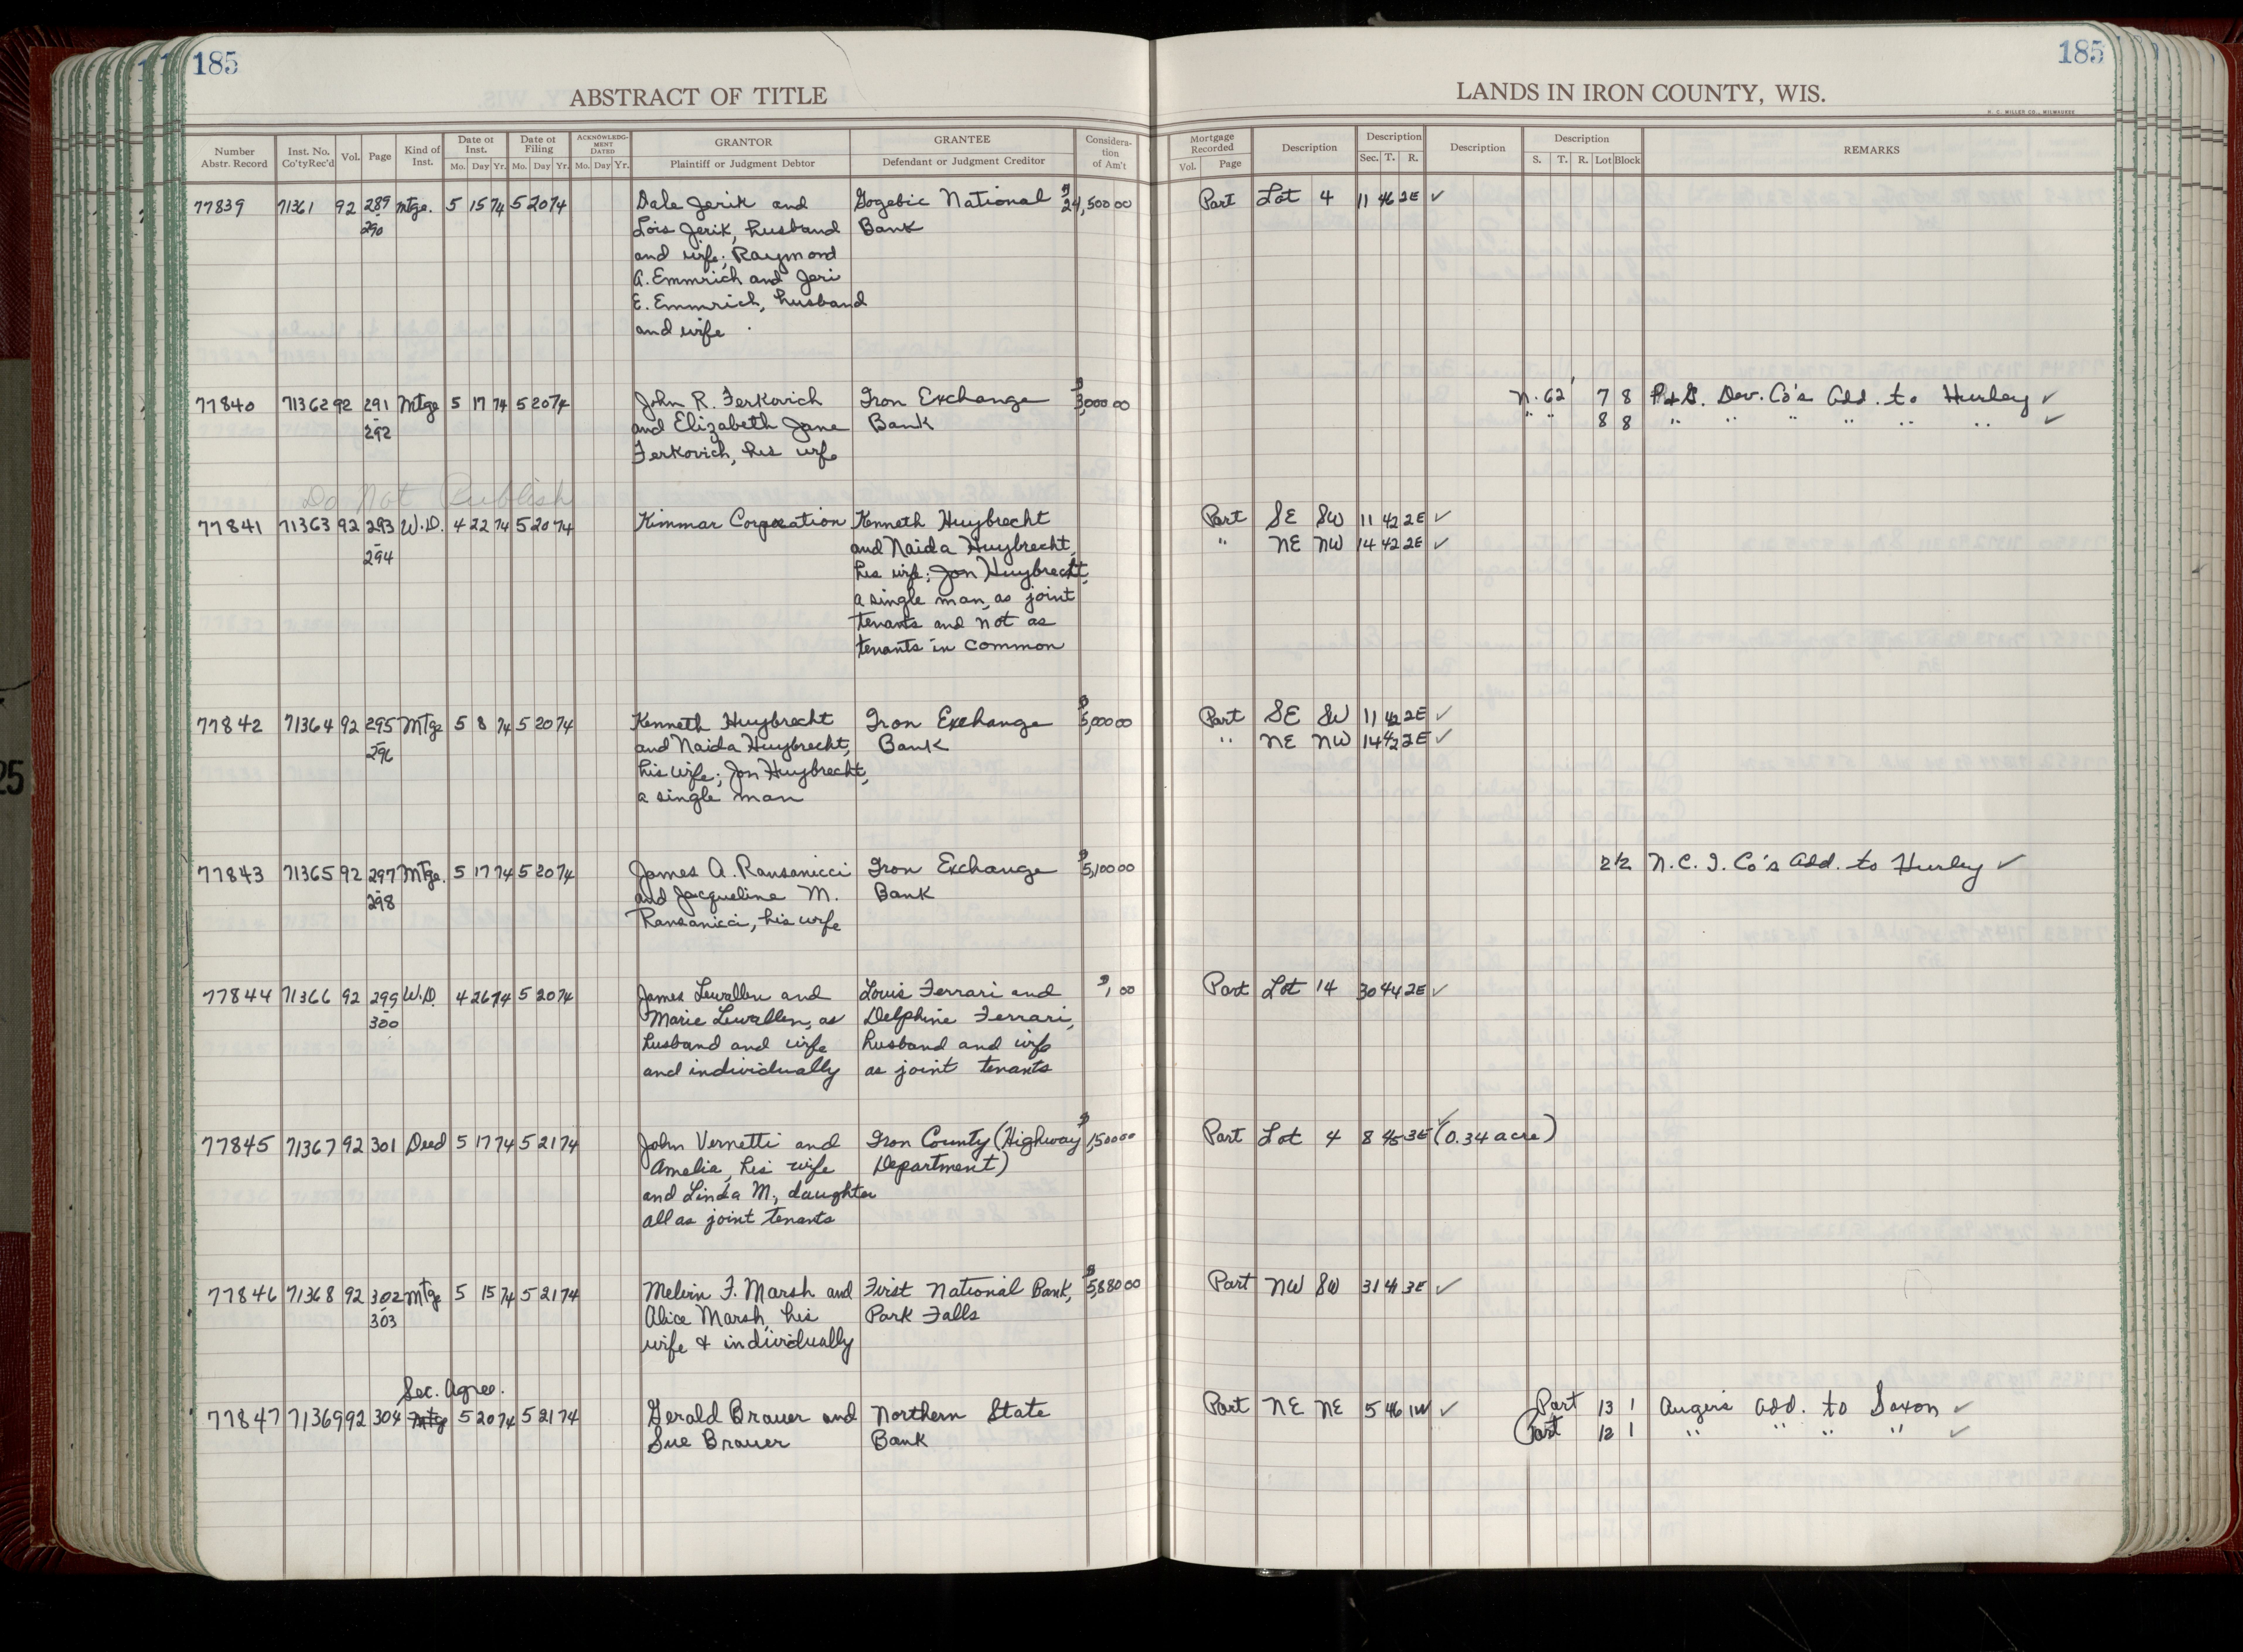 185
185
ABSTRACT OF TITLE
LANDS IN IRON COUNTY, WIS.
H. C. MILLER CO., MILWAUKEE
Number Abstr. Record | Inst. No. Co'tyRec'd | Vol. | Page | Kind of Inst. | Date of Inst. Mo. Day Yr. | Date of Filing Mo. Day Yr. | ACKNOWLEDGMENT DATED Mo. Day Yr. | GRANTOR Plaintiff or Judgment Debtor | GRANTEE Defendant or Judgment Creditor | Consideration of Am't | Mortgage Recorded Vol. Page | Description | Description Sec. T. R. | Description | Description S. T. R. Lot Block | REMARKS
77839 71361 92 289 Mtge. 5 15 74 5 20 74 Dale Jerik and Gogebic National $24,500 00 Part Lot 4 11 46 2E ✓
290 Lois Jerik, husband Bank
and wife; Raymond
A. Emmrich and Jeri
E. Emmrich, husband
and wife
77840 71362 92 291 Mtge 5 17 74 5 20 74 John R. Ferkovich Iron Exchange $3,000 00 N. 62' 7 8 P. & S. Dev. Co's Add. to Hurley ✓
292 and Elizabeth Jane Bank " " 8 8 " " " " " " ✓
Ferkovich, his wife
Do Not Publish
77841 71363 92 293 W.D. 4 22 74 5 20 74 Kimmar Corporation Kenneth Huybrecht Part SE SW 11 42 2E ✓
294 and Naida Huybrecht, " NE NW 14 42 2E ✓
his wife; Jon Huybrecht,
a single man, as joint
tenants and not as
tenants in common
77842 71364 92 295 Mtge 5 8 74 5 20 74 Kenneth Huybrecht Iron Exchange $5,000 00 Part SE SW 11 42 2E ✓
296 and Naida Huybrecht, Bank " NE NW 14 42 2E ✓
his wife; Jon Huybrecht,
a single man
77843 71365 92 297 Mtge. 5 17 74 5 20 74 James A. Ransanicci Iron Exchange $5,100 00 2 1/2 N. C. I. Co's Add. to Hurley ✓
298 and Jacqueline M. Bank
Ransanicci, his wife
77844 71366 92 299 W.D. 4 26 74 5 20 74 James Lewallen and Louis Ferrari and $1 00 Part Lot 14 30 44 2E ✓
300 Marie Lewallen, as Delphine Ferrari,
husband and wife husband and wife
and individually as joint tenants
77845 71367 92 301 Deed 5 17 74 5 21 74 John Vernetti and Iron County (Highway $150 00 Part Lot 4 8 45 3E ✓ (0.34 acre)
Amelia, his wife Department)
and Linda M., daughter
all as joint tenants
77846 71368 92 302 Mtge 5 15 74 5 21 74 Melvin F. Marsh and First National Bank, $5,880 00 Part NW SW 31 41 3E ✓
303 Alice Marsh, his Park Falls
wife & individually
Sec. Agree.
77847 71369 92 304 Mtge 5 20 74 5 21 74 Gerald Brauer and Northern State Part NE NE 5 46 1W ✓ Part 13 1 Auger's Add. to Saxon ✓
Sue Brauer Bank Part 12 1 " " " " ✓
25